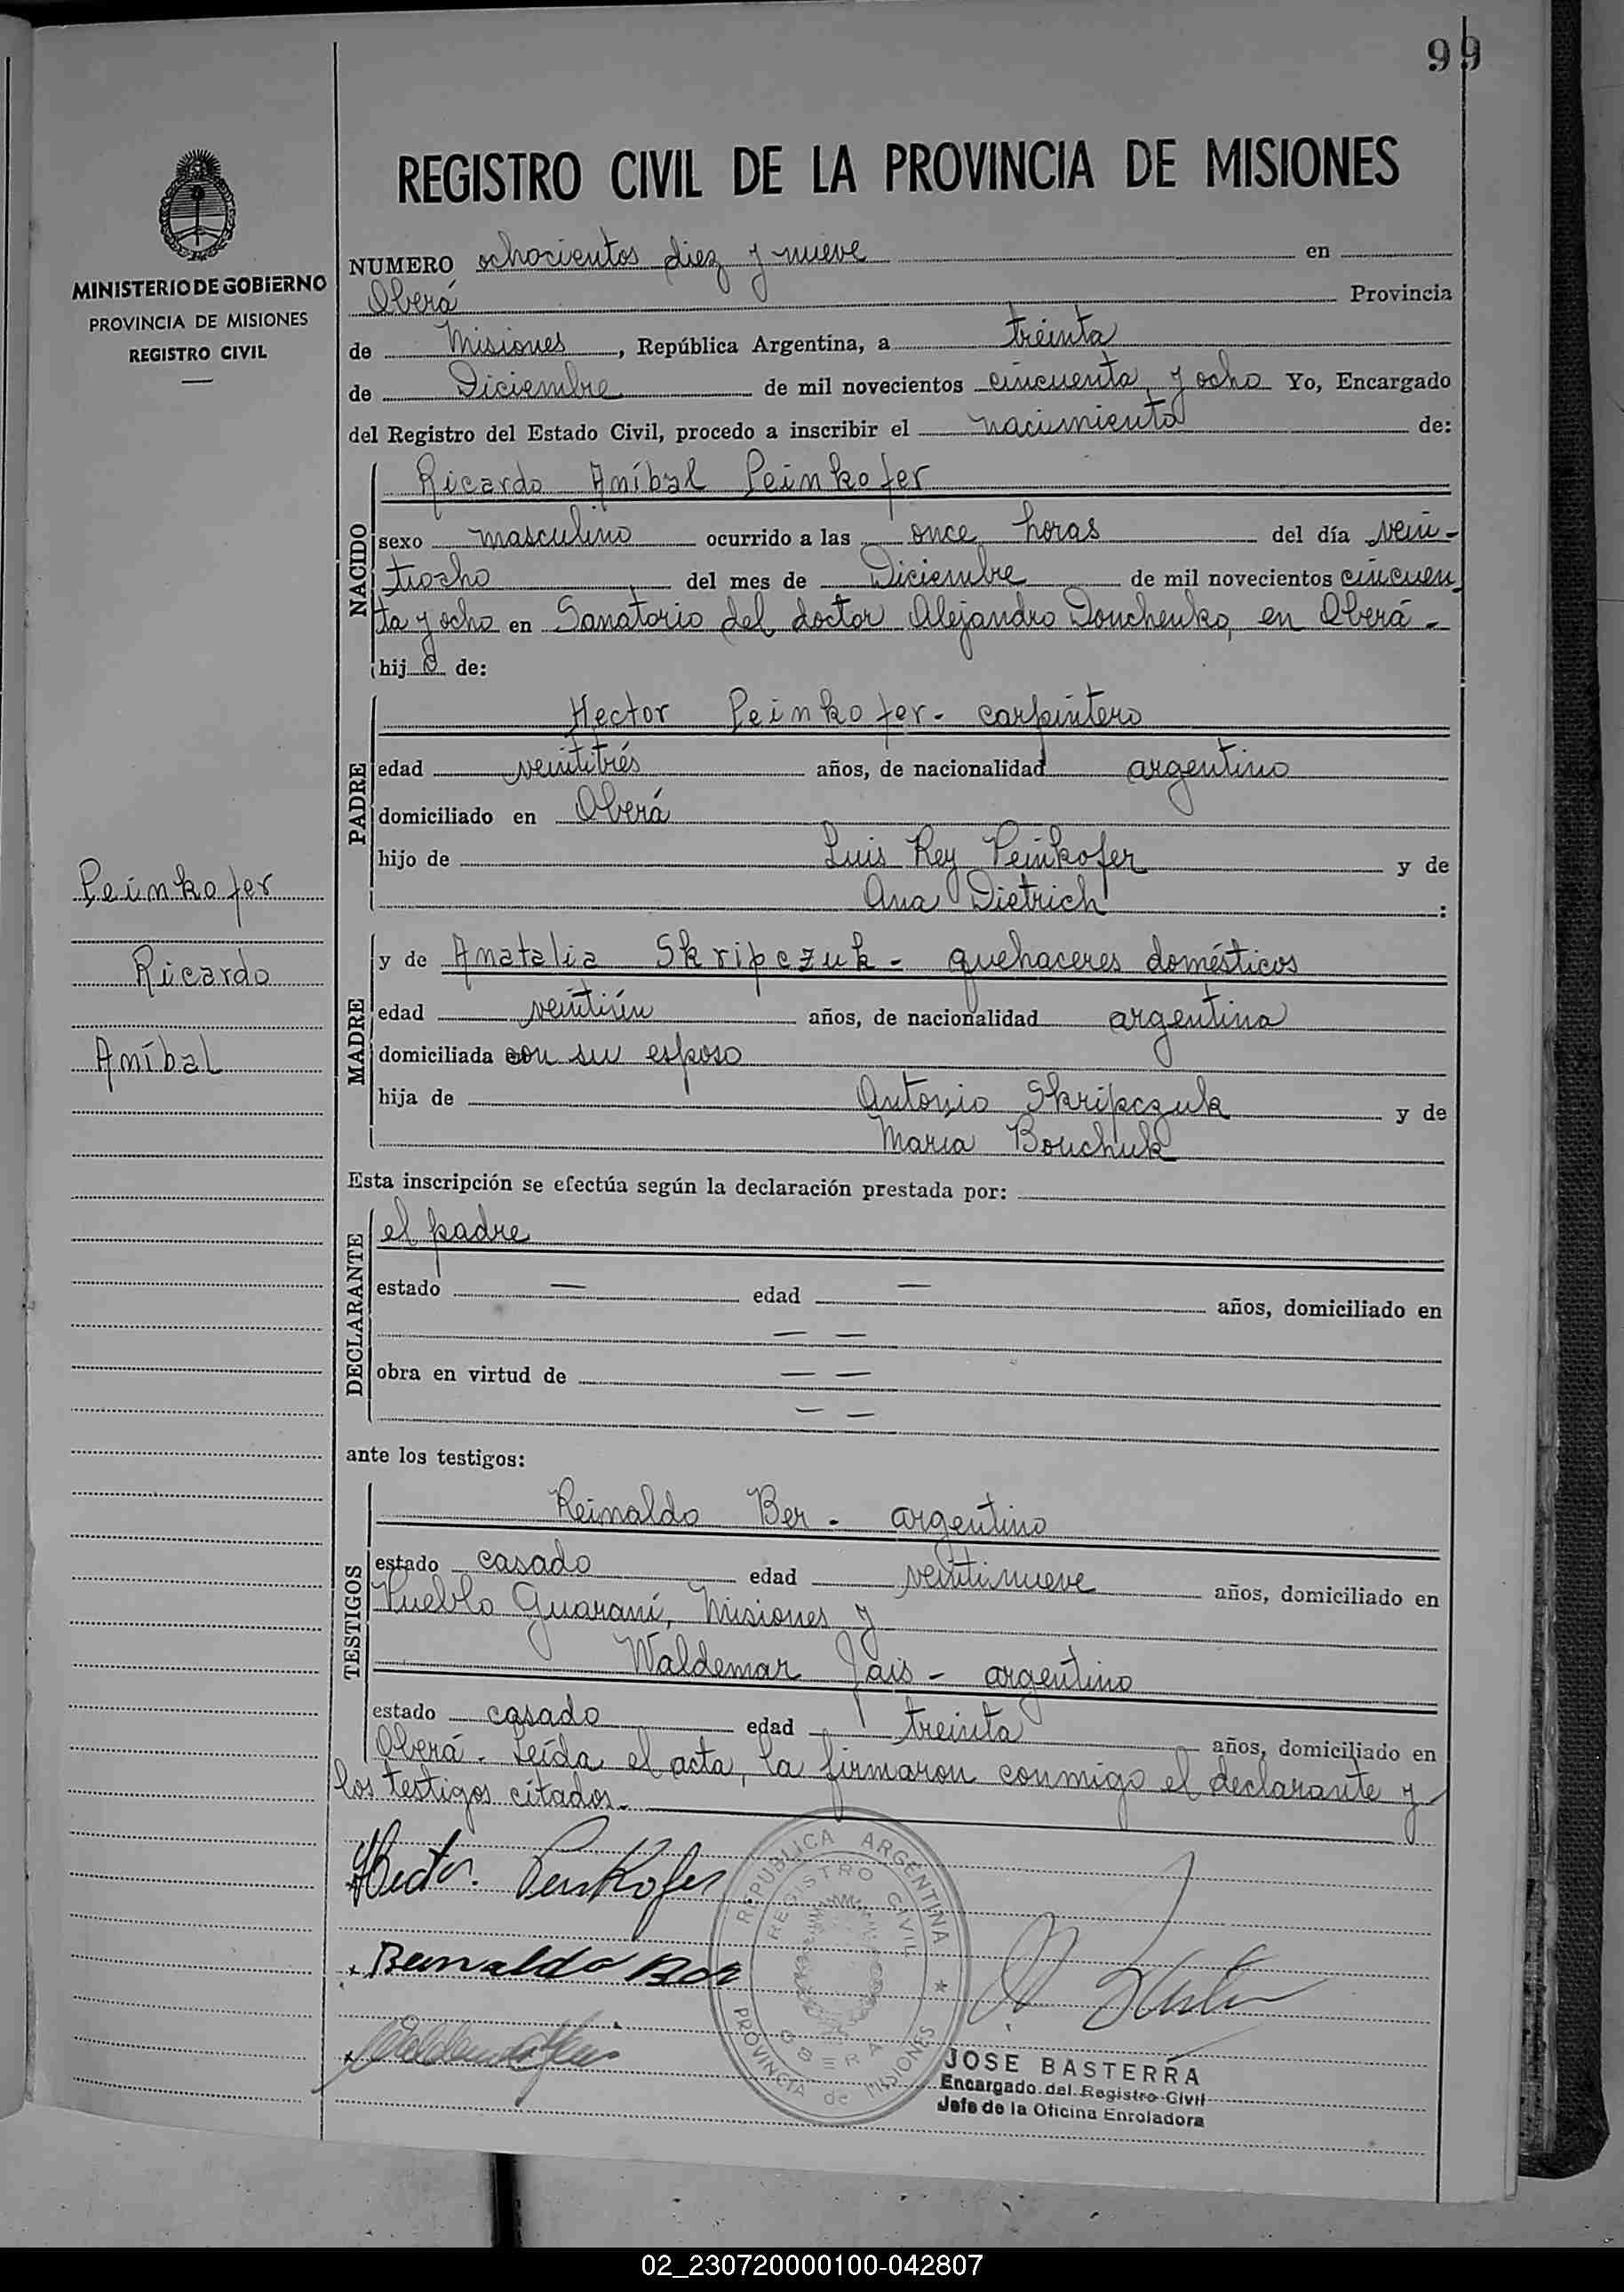 99
REGISTRO CIVIL DE LA PROVINCIA DE MISIONES
MINISTERIO DE GOBIERNO
PROVINCIA DE MISIONES
REGISTRO CIVIL
NUMERO ochocientos diez y nueve en
Oberá Provincia
de Misiones, República Argentina, a treinta
de Diciembre de mil novecientos cincuenta y ocho Yo, Encargado
del Registro del Estado Civil, procedo a inscribir el nacimiento de:
NACIDO
Ricardo Aníbal Peinkofer
sexo masculino ocurrido a las once horas del día vein-
tiocho del mes de Diciembre de mil novecientos cincuen
ta y ocho en Sanatorio del doctor Alejandro Douchenko, en Oberá-
hijo de:
PADRE
Hector Peinkofer - carpintero
edad veintitrés años, de nacionalidad argentino
domiciliado en Oberá
hijo de Luis Rey Peinkofer y de
Ana Dietrich :
Peinkofer
Ricardo
Aníbal
MADRE
y de Anatalia Skripczuk - quehaceres domésticos
edad veintiún años, de nacionalidad argentina
domiciliada con su esposo
hija de Antonio Skripczuk y de
María Bouchuk
Esta inscripción se efectúa según la declaración prestada por:
DECLARANTE
el padre
estado — edad — años, domiciliado en
— —
obra en virtud de — —
— —
ante los testigos:
TESTIGOS
Reinaldo Ber - argentino
estado casado edad veintinueve años, domiciliado en
Pueblo Guaraní, Misiones y
Waldemar Jais - argentino
estado casado edad treinta años, domiciliado en
Oberá. Leída el acta, la firmaron conmigo el declarante y
los testigos citados.
Hector Peinkofer
Reinaldo Ber
REPUBLICA ARGENTINA
REGISTRO CIVIL
OBERA
PROVINCIA de MISIONES
JOSE BASTERRA
Encargado del Registro Civil
Jefe de la Oficina Enroladora
02_230720000100-042807